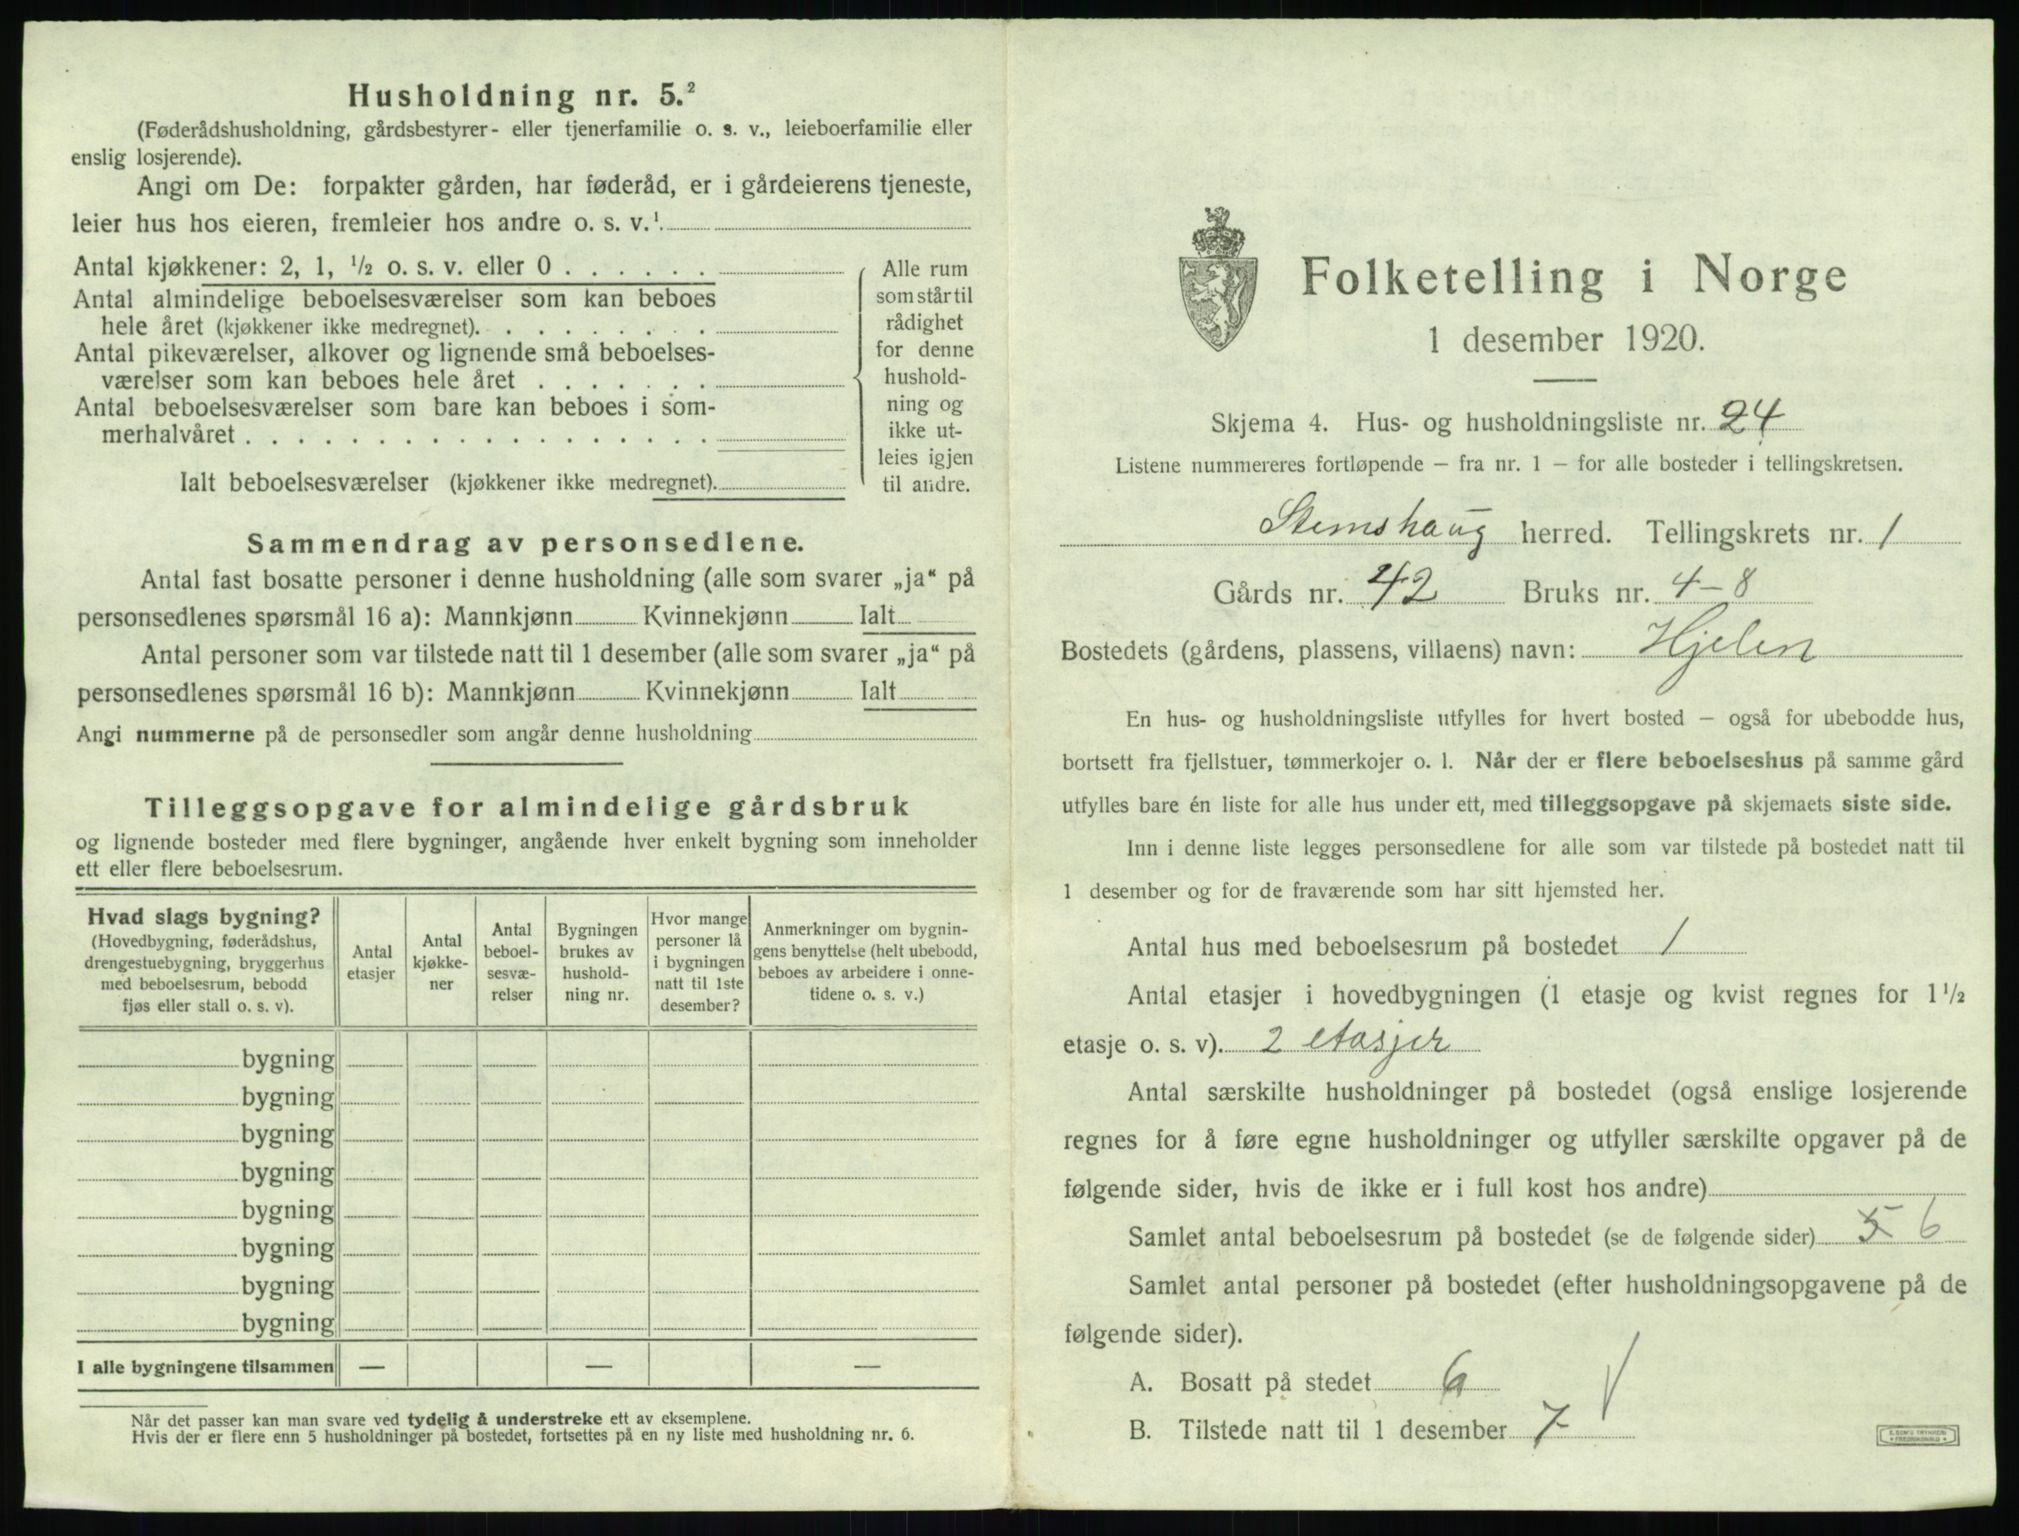 Husholdning nr. 5.²
(Føderådshusholdning, gårdsbestyrer- eller tjenerfamilie o. s. v., leieboerfamilie eller
enslig losjerende).
Angi om De: forpakter gården, har føderåd, er i gårdeierens tjeneste,
leier hus hos eieren, fremleier hos andre o. s. v.¹
Antal kjøkkener: 2, 1, ½ o. s. v. eller 0 . . . . . .
Antal almindelige beboelsesværelser som kan beboes
hele året (kjøkkener ikke medregnet). . . . . . . . .
Antal pikeværelser, alkover og lignende små beboelses-
værelser som kan beboes hele året . . . . . . .
Antal beboelsesværelser som bare kan beboes i som-
merhalvåret . . . . . . . . . . . . . . . . . .
Ialt beboelsesværelser (kjøkkener ikke medregnet).
Alle rum
som står til
rådighet
for denne
hushold-
ning og
ikke ut-
leies igjen
til andre.
Sammendrag av personsedlene.
Antal fast bosatte personer i denne husholdning (alle som svarer „ja“ på
personsedlenes spørsmål 16 a): Mannkjønn Kvinnekjønn Ialt
Antal personer som var tilstede natt til 1 desember (alle som svarer „ja“ på
personsedlenes spørsmål 16 b): Mannkjønn Kvinnekjønn Ialt
Angi nummerne på de personsedler som angår denne husholdning
Tilleggsopgave for almindelige gårdsbruk
og lignende bosteder med flere bygninger, angående hver enkelt bygning som inneholder
ett eller flere beboelsesrum.
Hvad slags bygning?
(Hovedbygning, føderådshus,
drengestuebygning, bryggerhus
med beboelsesrum, bebodd
fjøs eller stall o. s. v).
Antal
etasjer
Antal
kjøkke-
ner
Antal
beboel-
sesvæ-
relser
Bygningen
brukes av
hushold-
ning nr.
Hvor mange
personer lå
i bygningen
natt til 1ste
desember?
Anmerkninger om bygnin-
gens benyttelse (helt ubebodd,
beboes av arbeidere i onne-
tidene o. s. v.)
bygning
bygning
bygning
bygning
bygning
bygning
bygning
bygning
I alle bygningene tilsammen — — —
Når det passer kan man svare ved tydelig å understreke ett av eksemplene.
Hvis der er flere enn 5 husholdninger på bostedet, fortsettes på en ny liste med husholdning nr. 6.
Folketelling i Norge
1 desember 1920.
Skjema 4. Hus- og husholdningsliste nr. 24
Listene nummereres fortløpende – fra nr. 1 – for alle bosteder i tellingskretsen.
Stemshaug herred. Tellingskrets nr. 1
Gårds nr. 42 Bruks nr. 4-8
Bostedets (gårdens, plassens, villaens) navn: Hjelen
En hus- og husholdningsliste utfylles for hvert bosted – også for ubebodde hus,
bortsett fra fjellstuer, tømmerkojer o. l. Når der er flere beboelseshus på samme gård
utfylles bare én liste for alle hus under ett, med tilleggsopgave på skjemaets siste side.
Inn i denne liste legges personsedlene for alle som var tilstede på bostedet natt til
1 desember og for de fraværende som har sitt hjemsted her.
Antal hus med beboelsesrum på bostedet 1
Antal etasjer i hovedbygningen (1 etasje og kvist regnes for 1½
etasje o. s. v). 2 etasjer
Antal særskilte husholdninger på bostedet (også enslige losjerende
regnes for å føre egne husholdninger og utfyller særskilte opgaver på de
følgende sider, hvis de ikke er i full kost hos andre)
Samlet antal beboelsesrum på bostedet (se de følgende sider) 5 6
Samlet antal personer på bostedet (efter husholdningsopgavene på de
følgende sider).
A. Bosatt på stedet 6
B. Tilstede natt til 1 desember 7